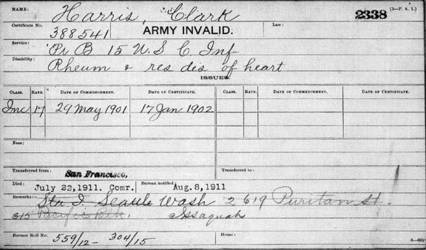 Name: Harris, Clark 2338 (3—F. s. 1.)
Certificate No. 388541 ARMY INVALID. Law:
Service: Pr B 15 U S C Inf
Disability: Rheum & res dis of heart
ISSUES.
CLASS. RATE. DATE OF COMMENCEMENT. DATE OF CERTIFICATE. CLASS. RATE. DATE OF COMMENCEMENT. DATE OF CERTIFICATE.
Inc 17 29 May 1901 17 Jan 1902
Fees:
Transferred from San Francisco, Transferred from
Died: July 22, 1911. Comr. Bureau notified Aug. 8, 1911
Sta. I. Seattle Wash 2619 Puritan St.
315 Issaquah
Former Roll No. 559/12 - 304/15 Home: